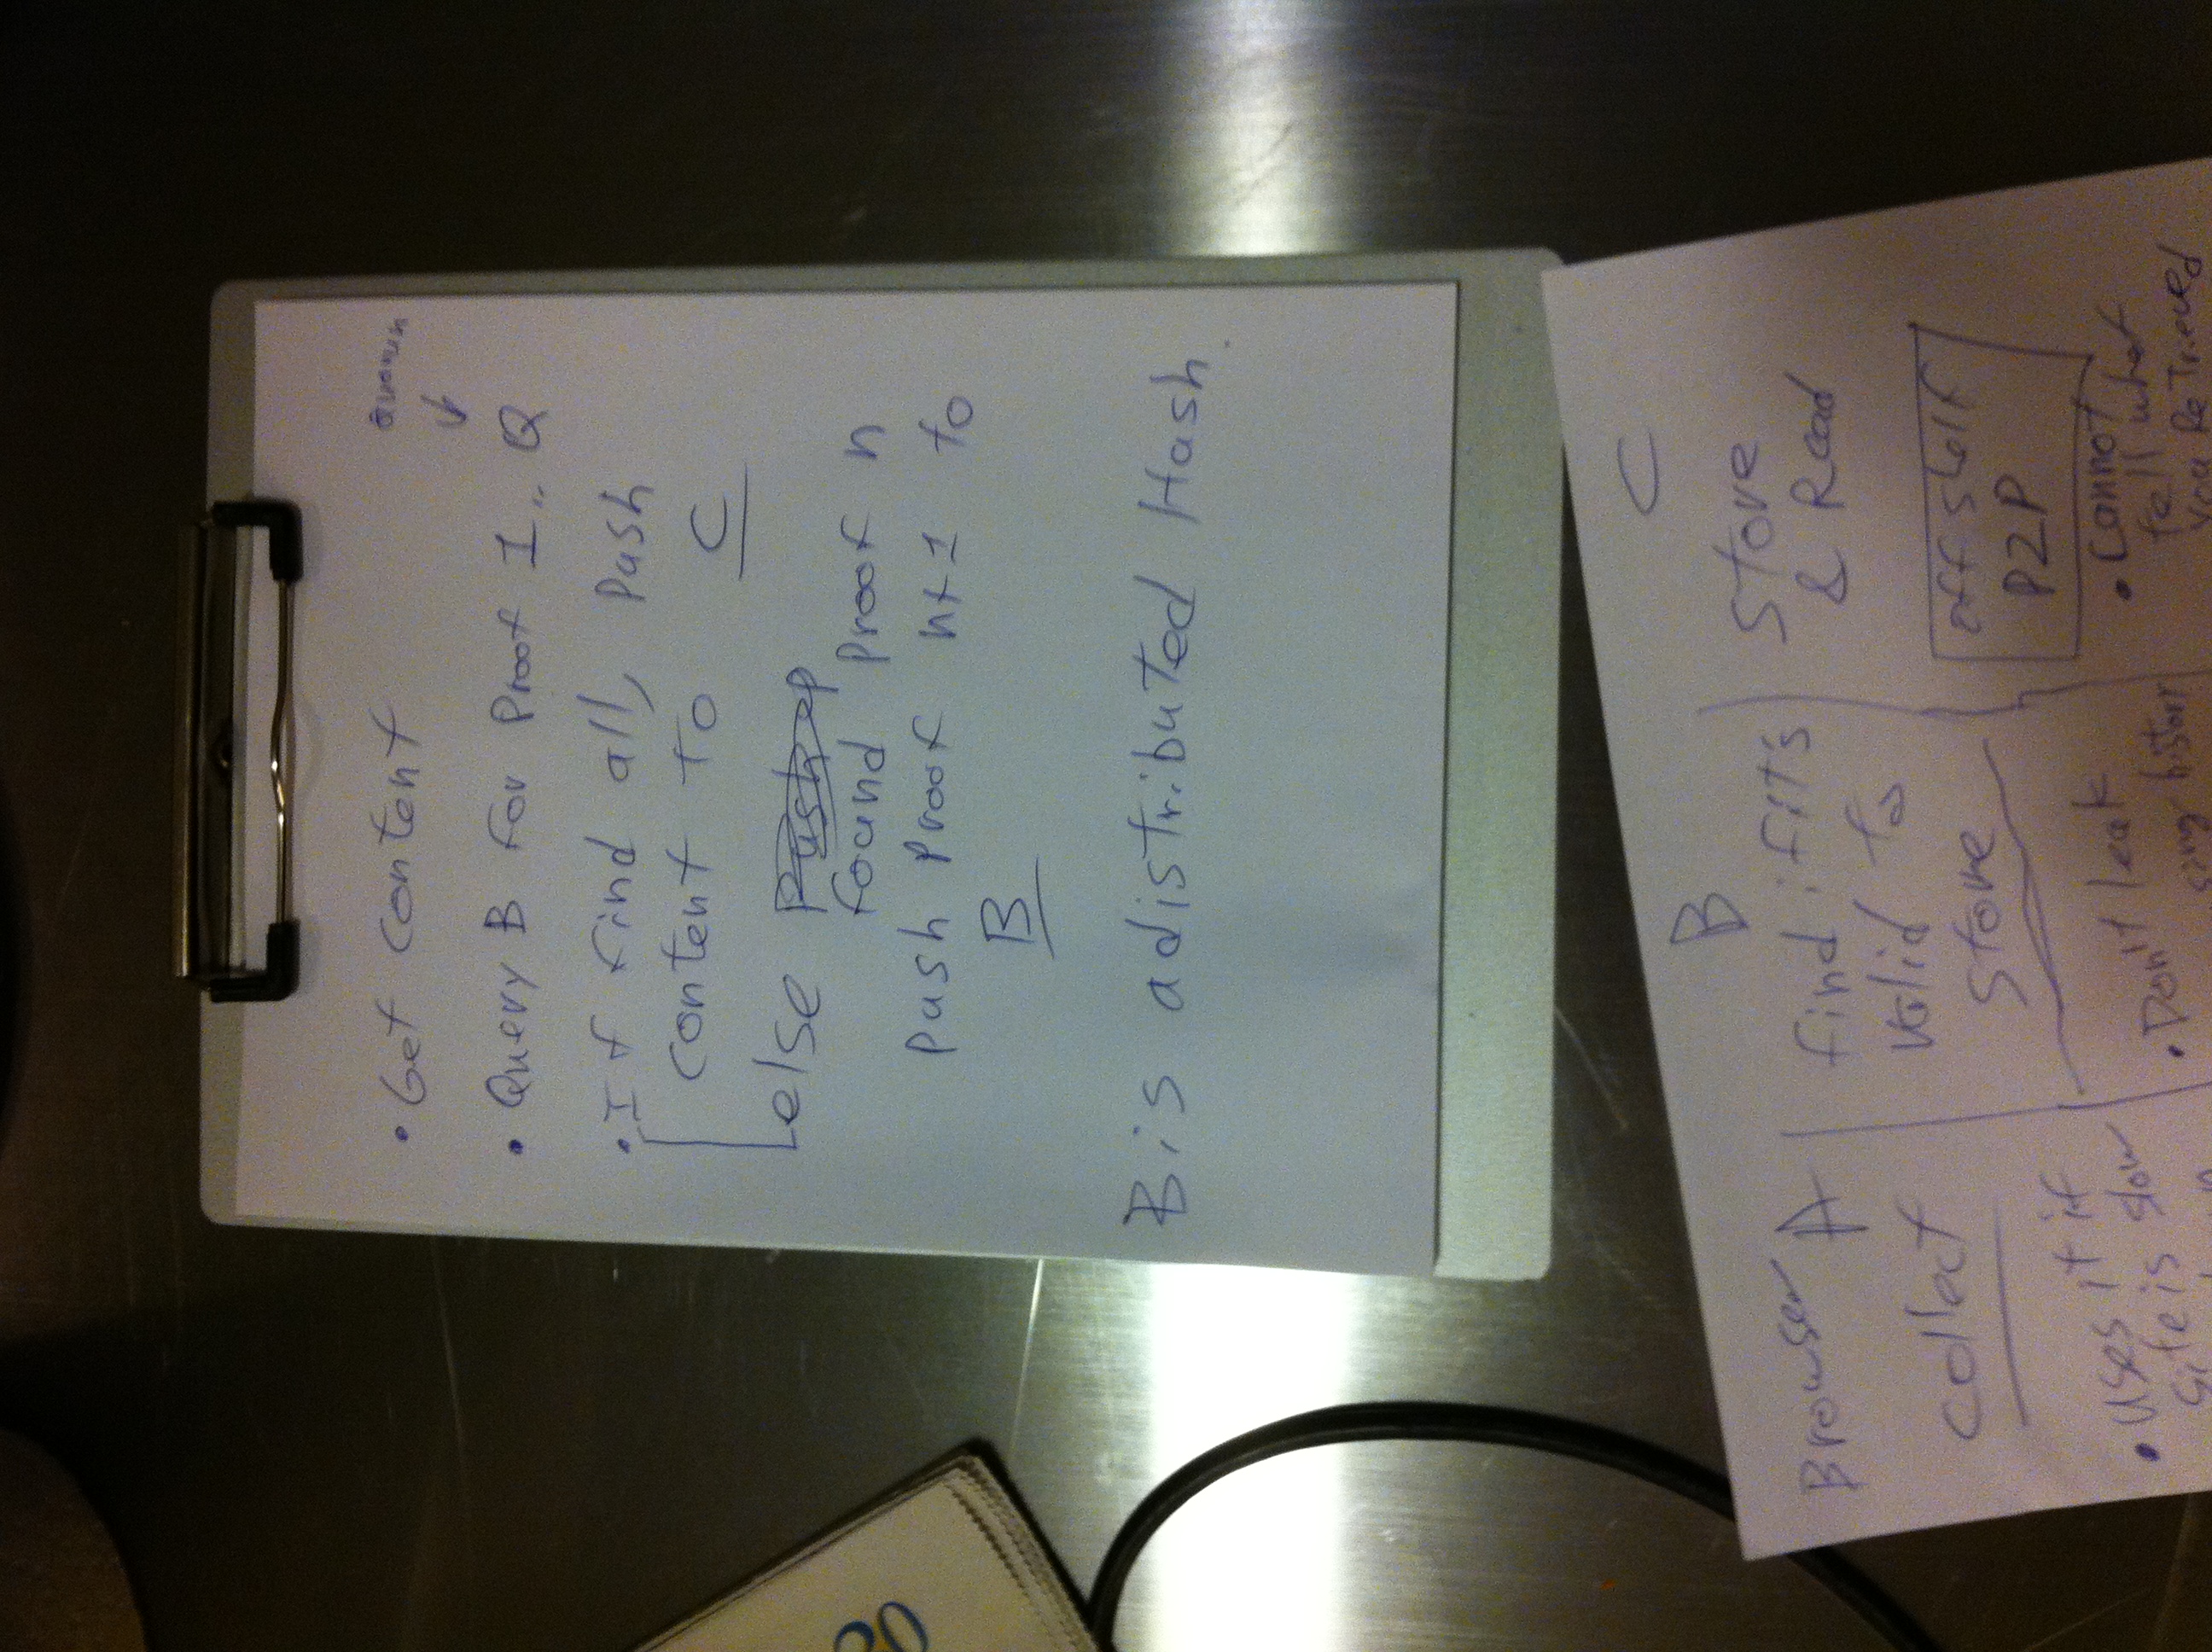 • Get content
• Query B for Proof 1.. Q
• If find all, Push
content to C
else
found Proof n
Push Proof n+1 to
B
B is a distributed Hash
Browser A
collect
• uses it if
site is slow
B
find if it's
valid to
store
• Don't leak
history
C
store
& Read
off shelf
P2P
• cannot
tell what
you Retrieved